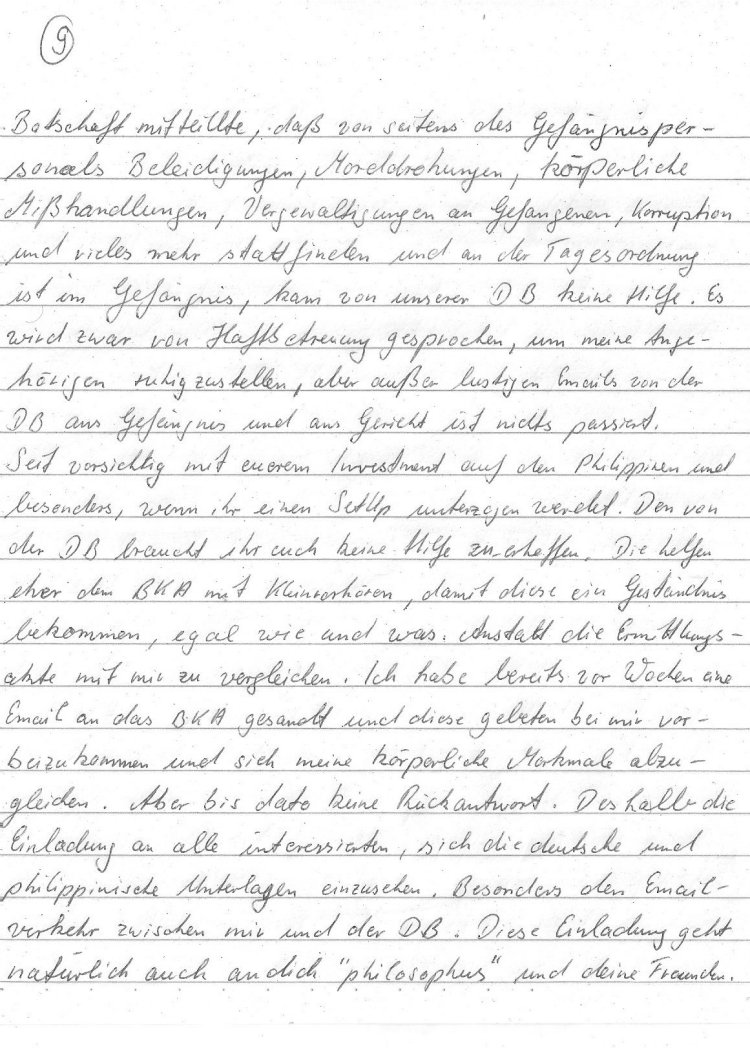 9
Botschaft mitteillte, daß von seitens des Gefängnisper-
sonals Beleidigungen, Morddrohungen, körperliche
Mißhandlungen, Vergewaltigungen an Gefangenen, Korruption
und vieles mehr stattfinden und an der Tagesordnung
ist im Gefängnis, kam von unserer DB keine Hilfe. Es
wird zwar von Haftbetreuung gesprochen, um meine Ange-
hörigen ruhigzustellen, aber außer lustigen Emails von der
DB ans Gefängnis und ans Gericht ist nichts passiert.
Seit vorsichtig mit euerem Investment auf den Philippinen und
besonders, wenn ihr einen SetUp unterzogen werdet. Den von
der DB braucht ihr euch keine Hilfe zu erhoffen. Die helfen
eher dem BKA mit Kleinverhören, damit diese ein Geständnis
bekommen, egal wie und was. Anstatt die Ermittlungs-
akte mit mir zu vergleichen. Ich habe bereits vor Wochen eine
Email an das BKA gesandt und diese gebeten bei mir vor-
beizukommen und sich meine körperliche Merkmale abzu-
gleichen. Aber bis dato keine Rückantwort. Deshalb die
Einladung an alle interessierten, sich die deutsche und
philippinische Unterlagen einzusehen. Besonders den Email-
verkehr zwischen mir und der DB. Diese Einladung geht
natürlich auch an dich "philosophus" und deine Freunden.